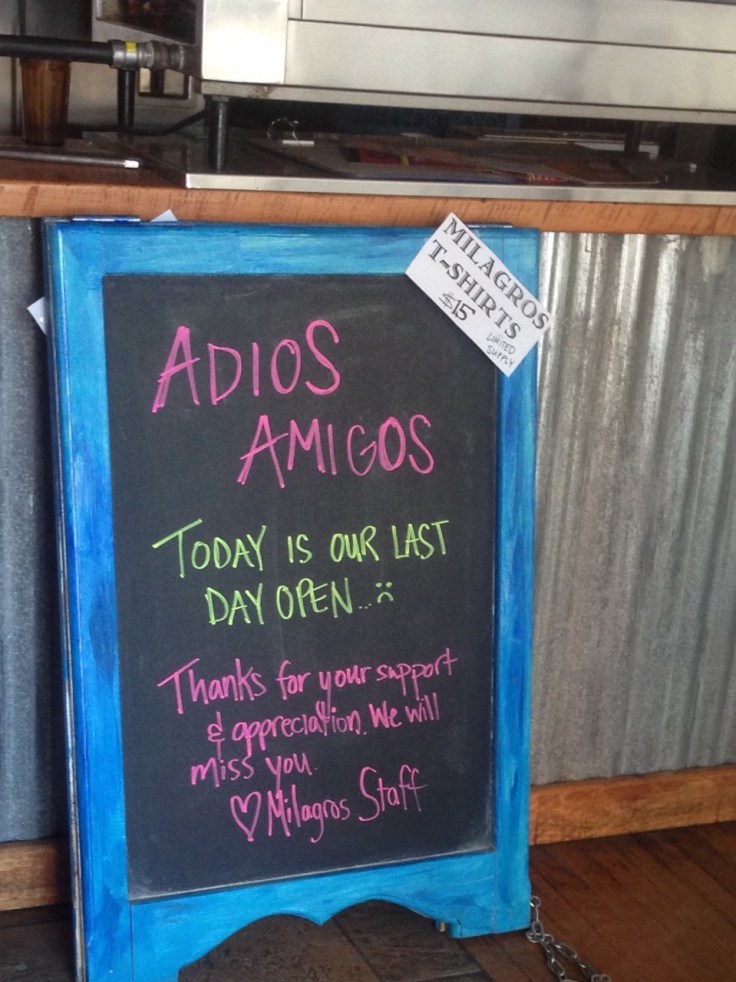 MILAGROS
T-SHIRTS
$15
LIMITED
SUPPLY
ADIOS
AMIGOS
TODAY IS OUR LAST
DAY OPEN... :(
Thanks for your support
& appreciation. We will
miss you.
♡ Milagros Staff